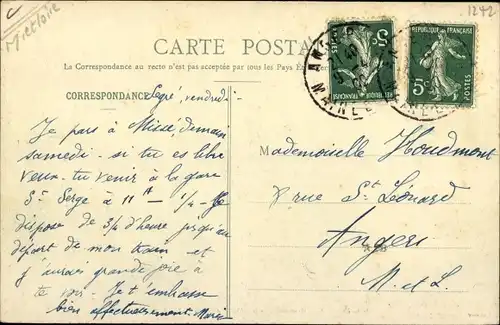 M et Loire
1242
CARTE POSTALE
La Correspondance au recto n'est pas acceptée par tous les Pays
CORRESPONDANCE
Segré, vendredi
Je pars à Missé, demain
samedi - si tu es libre
veux-tu venir à la gare
St Serge à 11 H - 1/4 - Je
dispose de 3/4 d'heure jusqu'au
départ de mon train et
j'aurais grande joie à
te voir - Je t'embrasse
bien affectueusement. Marie
REPUBLIQUE FRANÇAISE
5c
POSTES
REPUBLIQUE FRANÇAISE
5c
POSTES
ANGERS
MAINE
Mademoiselle Houdmont
8 rue St Léonard
Angers
M. et L.